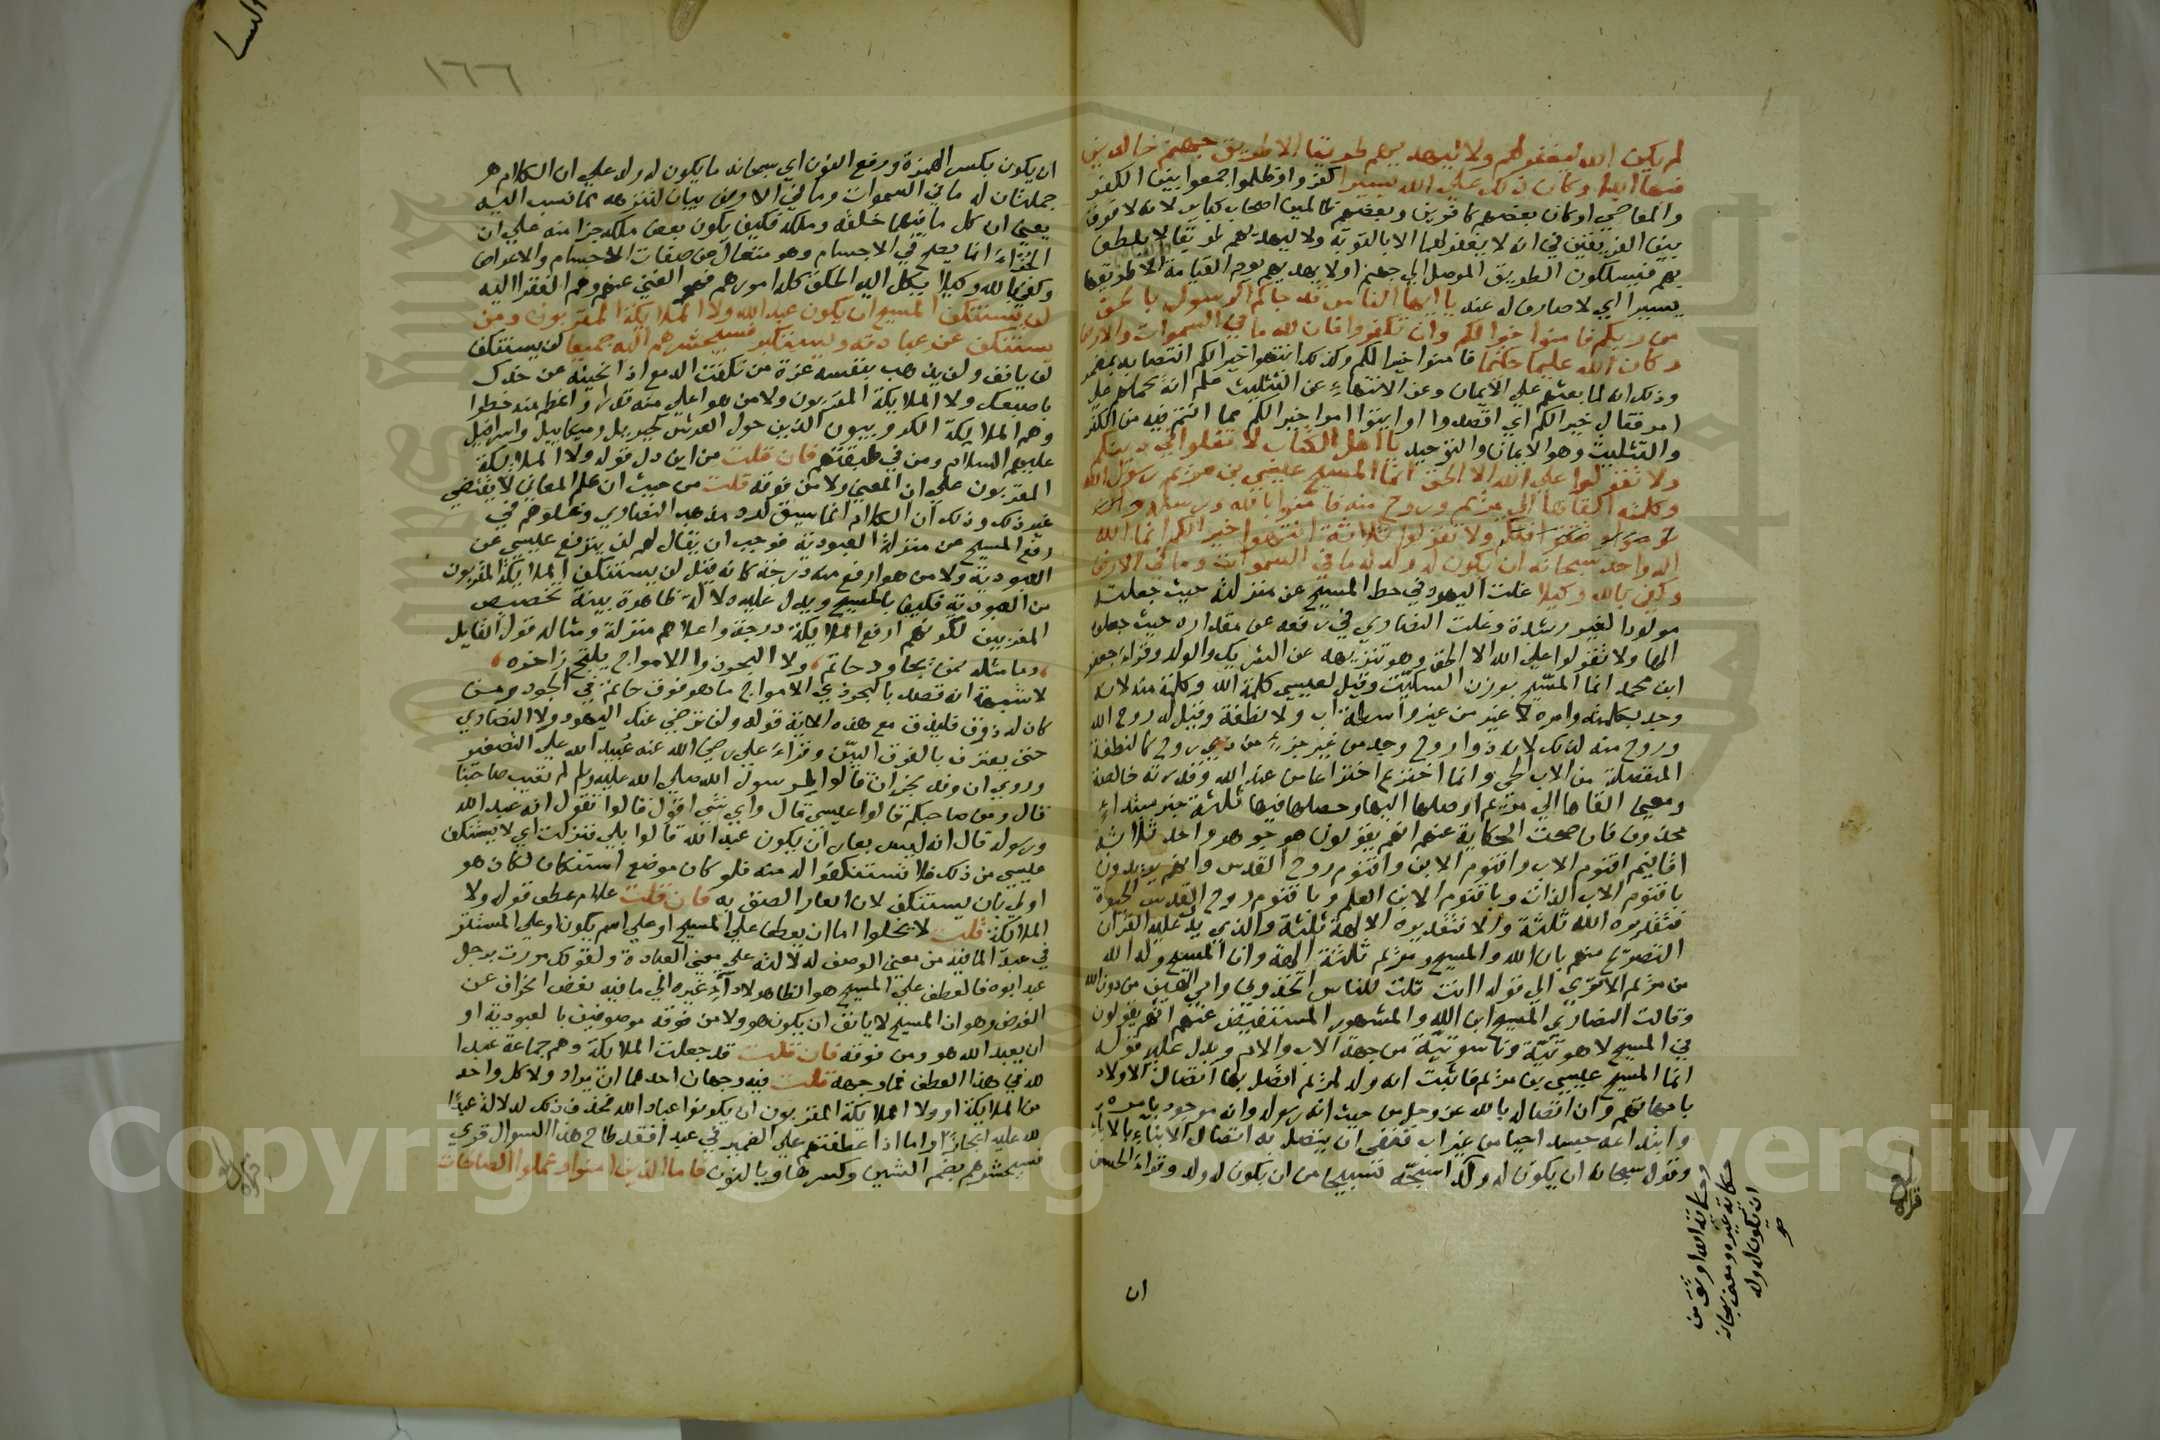 لم يكن الله ليغفر لهم ولا ليهديهم طريقا الا طريق جهنم خالدين
فيها ابدا وكان ذلك على الله يسيرا كفروا وظلموا جمعوا بين الكفر
والمعاصي او كان بعضهم كافرين وبعضهم ظالمين اصحاب كباير لانه لا فرق
بين الفريقين في انه لا يغفر لهما الا بالتوبة ولا ليهديهم طريقا لا يلطف
بهم فيسلكون الطريق الموصل الى جهنم اولا يهديهم يوم القيامة الا طريقها
يسيرا اي لا صارف له عنه يا ايها الناس قد جاكم الرسول بالحق
من ربكم فامنوا خيرا لكم وان تكفروا فان لله ما في السموات والارض
وكان الله عليما حكيما فامنوا خيرا لكم وكذلك انتهوا خيرا لكم انتصابه بمضمر
وذلك انه لما بعثهم على الايمان وعن الانتهاء عن التثليث علم انه يحملهم على
امر فقال خيرا لكم اي اقصدوا او ايتوا امرا خيرا لكم مما انتم فيه من الكفر
والتثليث وهو الايمان والتوحيد يا اهل الكتاب لا تغلوا في دينكم
ولا تقولوا على الله الا الحق انما المسيح عيسى بن مريم رسول الله
وكلمته القاها الى مريم وروح منه فامنوا بالله ورسله
ولا تقولوا ثلاثة انتهوا خيرا لكم انما الله
اله واحد سبحانه ان يكون له ولد له ما في السموات وما في الارض
وكفى بالله وكيلا غلت اليهود في حط المسيح عن منزلته حيث جعلته
مولودا لغير رشدة وغلت النصارى في رفعه عن مقداره حيث جعلوه
الها ولا تقولوا على الله الا الحق وهو تنزيهه عن الشريك والولد وقراء جعفر
ابن محمد انما المسيح بوزن السكيت وقيل لعيسى كلمة الله وكلمة منه لانه
وجد بكلمته وامره لا غير من غير واسطة اب ولا نطفة وقيل له روح الله
وروح منه لذلك لانه ذو روح وجد من غير جزء من ذي روح كالنطفة
المنفصلة من الاب الحي وانما اخترع اختراعا من عند الله وقدرته خالصة
ومعنى القاها الى مريم اوصلها اليها وحصلها فيها ثلثة خبر مبتداء
محذوف فان صحت الحكاية عنهم انهم يقولون هو جوهر واحد ثلاثة
اقانيم اقنوم الاب واقنوم الابن واقنوم روح القدس وانهم يريدون
باقنوم الاب الذات وباقنوم الابن العلم وباقنوم روح القدس الحيوة
فتقديره الله ثلثة والا فتقديره الالهة ثلثة والذي يدل عليه القران
التصريح منهم بان الله والمسيح ومريم ثلثة الهة وان المسيح ولد الله
من مريم الا ترى الى قوله اانت قلت للناس اتخذوني وامي الهين من دون الله
وقالت النصارى المسيح ابن الله والمشهور المستفيض عنهم انهم يقولون
في المسيح لاهوتية وناسوتية من جهة الاب والام ويدل عليه قوله
انما المسيح عيسى بن مريم فاثبت انه ولد لمريم اتصل بها اتصال الاولاد
بامهاتهم وان اتصاله بالله عز وجل من حيث انه رسوله وانه موجود بامره
وابتداعه جسدا حيا من غير اب فنفى ان يتصل به اتصال الابناء بالاباء
وقوله سبحانه ان يكون له ولد اسبحه تسبيحا من ان يكون له ولد وقراء الحسن
ان
ان يكون بكسر الهمزة ورفع النون اي سبحانه ما يكون له ولد على ان الكلام
جملتان له ما في السموات وما في الارض بيان لتنزهه عما نسب اليه
يعني ان كل ما فيهما خلقه وملكه فكيف يكون بعض ملكه جزا منه على ان
الجزء انما يصح في الاجسام وهو متعال عن صفات الاجسام والاعراض
وكفى بالله وكيلا يكل اليه الخلق كلهم امورهم فهو الغني عنهم وهم الفقرا اليه
لن يستنكف المسيح ان يكون عبدا لله ولا الملايكة المقربون ومن
يستنكف عن عبادته ويستكبر فسيحشرهم اليه جميعا لن يستنكف
لن يانف ولن يذهب بنفسه عزة من نكفت الدمع اذا نحيته عن خدك
باصبعك ولا الملايكة المقربون ولا من هو اعلى منه قدرا واعظم منه خطرا
وهم الملايكة الكروبيون الذين حول العرش كجبريل وميكاييل واسرافيل
عليهم السلام ومن في طبقتهم فان قلت من اين دل قوله ولا الملايكة
المقربون على ان المعنى ولا من فوقه قلت من حيث ان علم المعاني لا يقتضي
غير ذلك وذلك ان الكلام انما سيق لرد مذهب النصارى وغلوهم في
رفع المسيح عن منزلة العبودية فوجب ان يقال لهم لن يترفع عيسى عن
العبودية ولا من هو ارفع منه درجة كانه قيل لن يستنكف الملايكة المقربون
من العبودية فكيف بالمسيح ويدل عليه دلالة ظاهرة بينة تخصيص
المقربين لكونهم ارفع الملايكة درجة واعلاهم منزلة ومثاله قول القايل
وما مثله ممن يجاود حاتم ولا البحر ذو الامواج يلتج زاخره
لا شبهة انه قصد بالبحر ذي الامواج ما هو فوق حاتم في الجود ومن
كان له ذوق فليذق مع هذه الاية قوله ولن ترضى عنك اليهود ولا النصارى
حتى يعترف بالفرق البين وقراء علي رضي الله عنه عبيد الله على التصغير
وروي ان وفد نجران قالوا لرسول الله صلى الله عليه وسلم لم تعيب صاحبنا
قال ومن صاحبكم قالوا عيسى قال واي شي اقول قالوا تقول انه عبد الله
ورسوله قال انه ليس بعار ان يكون عبد الله قالوا بلى فنزلت اي لا يستنكف
عيسى من ذلك فلا تستنكفوا له منه فلو كان موضع استنكاف لكان هو
اولى بان يستنكف لان العار الصق به فان قلت علام عطف قوله ولا
الملايكة قلت لا يخلوا اما ان يعطف على المسيح او على اسم يكون او على المستتر
في عبدا لما فيه من معنى الوصف لدلالته على معنى العبادة وقولك مررت برجل
عبد ابوه فالعطف على المسيح هو الظاهر لاداء غيره الى ما فيه بعض انحراف عن
الغرض وهو ان المسيح لا يانف ان يكون هو ولا من فوقه موصوفين بالعبودية او
ان يعبد الله هو ومن فوقه فان قلت قد جعلت الملايكة وهم جماعة عبدا
لله في هذا العطف فما وجهه قلت فيه وجهان احدهما ان يراد ولا كل واحد
من الملايكة او ولا الملايكة المقربون ان يكونوا عباد الله فحذف ذلك لدلالة عبدا
لله عليه ايجازا واما اذا عطفتهم على الضمير في عبدا فقد طاح هذا السوال قري
فسيحشرهم بضم الشين وكسرها وبالنون فاما الذين امنوا وعملوا الصالحات
١٦٦
Copyright © King Saud University